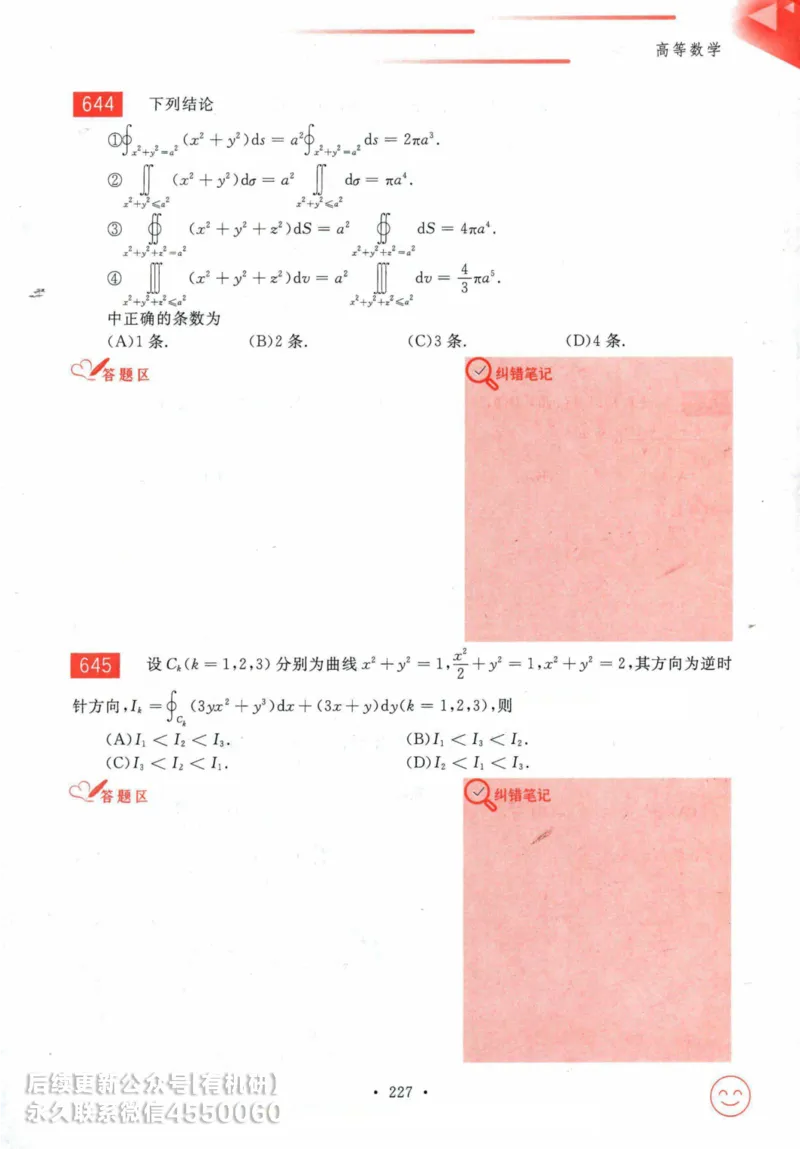 高等数学
644 下列结论
①∮_{x²+y²=a²} (x² + y²)ds = a²∮_{x²+y²=a²} ds = 2πa³.
② ∬_{x²+y²≤a²} (x² + y²)dσ = a² ∬_{x²+y²≤a²} dσ = πa⁴.
③ ∯_{x²+y²+z²=a²} (x² + y² + z²)dS = a² ∯_{x²+y²+z²=a²} dS = 4πa⁴.
④ ∭_{x²+y²+z²≤a²} (x² + y² + z²)dv = a² ∭_{x²+y²+z²≤a²} dv = 4/3 πa⁵.
中正确的条数为
(A)1 条. (B)2 条. (C)3 条. (D)4 条.
答题区 纠错笔记
645 设 Cₖ(k = 1,2,3) 分别为曲线 x² + y² = 1, x²/2 + y² = 1, x² + y² = 2,其方向为逆时
针方向, Iₖ = ∮_{Cₖ} (3yx² + y³)dx + (3x + y)dy(k = 1,2,3),则
(A)I₁ < I₂ < I₃. (B)I₁ < I₃ < I₂.
(C)I₃ < I₂ < I₁. (D)I₂ < I₁ < I₃.
答题区 纠错笔记
后续更新公众号[有机研]
永久联系微信4550060
· 227 ·